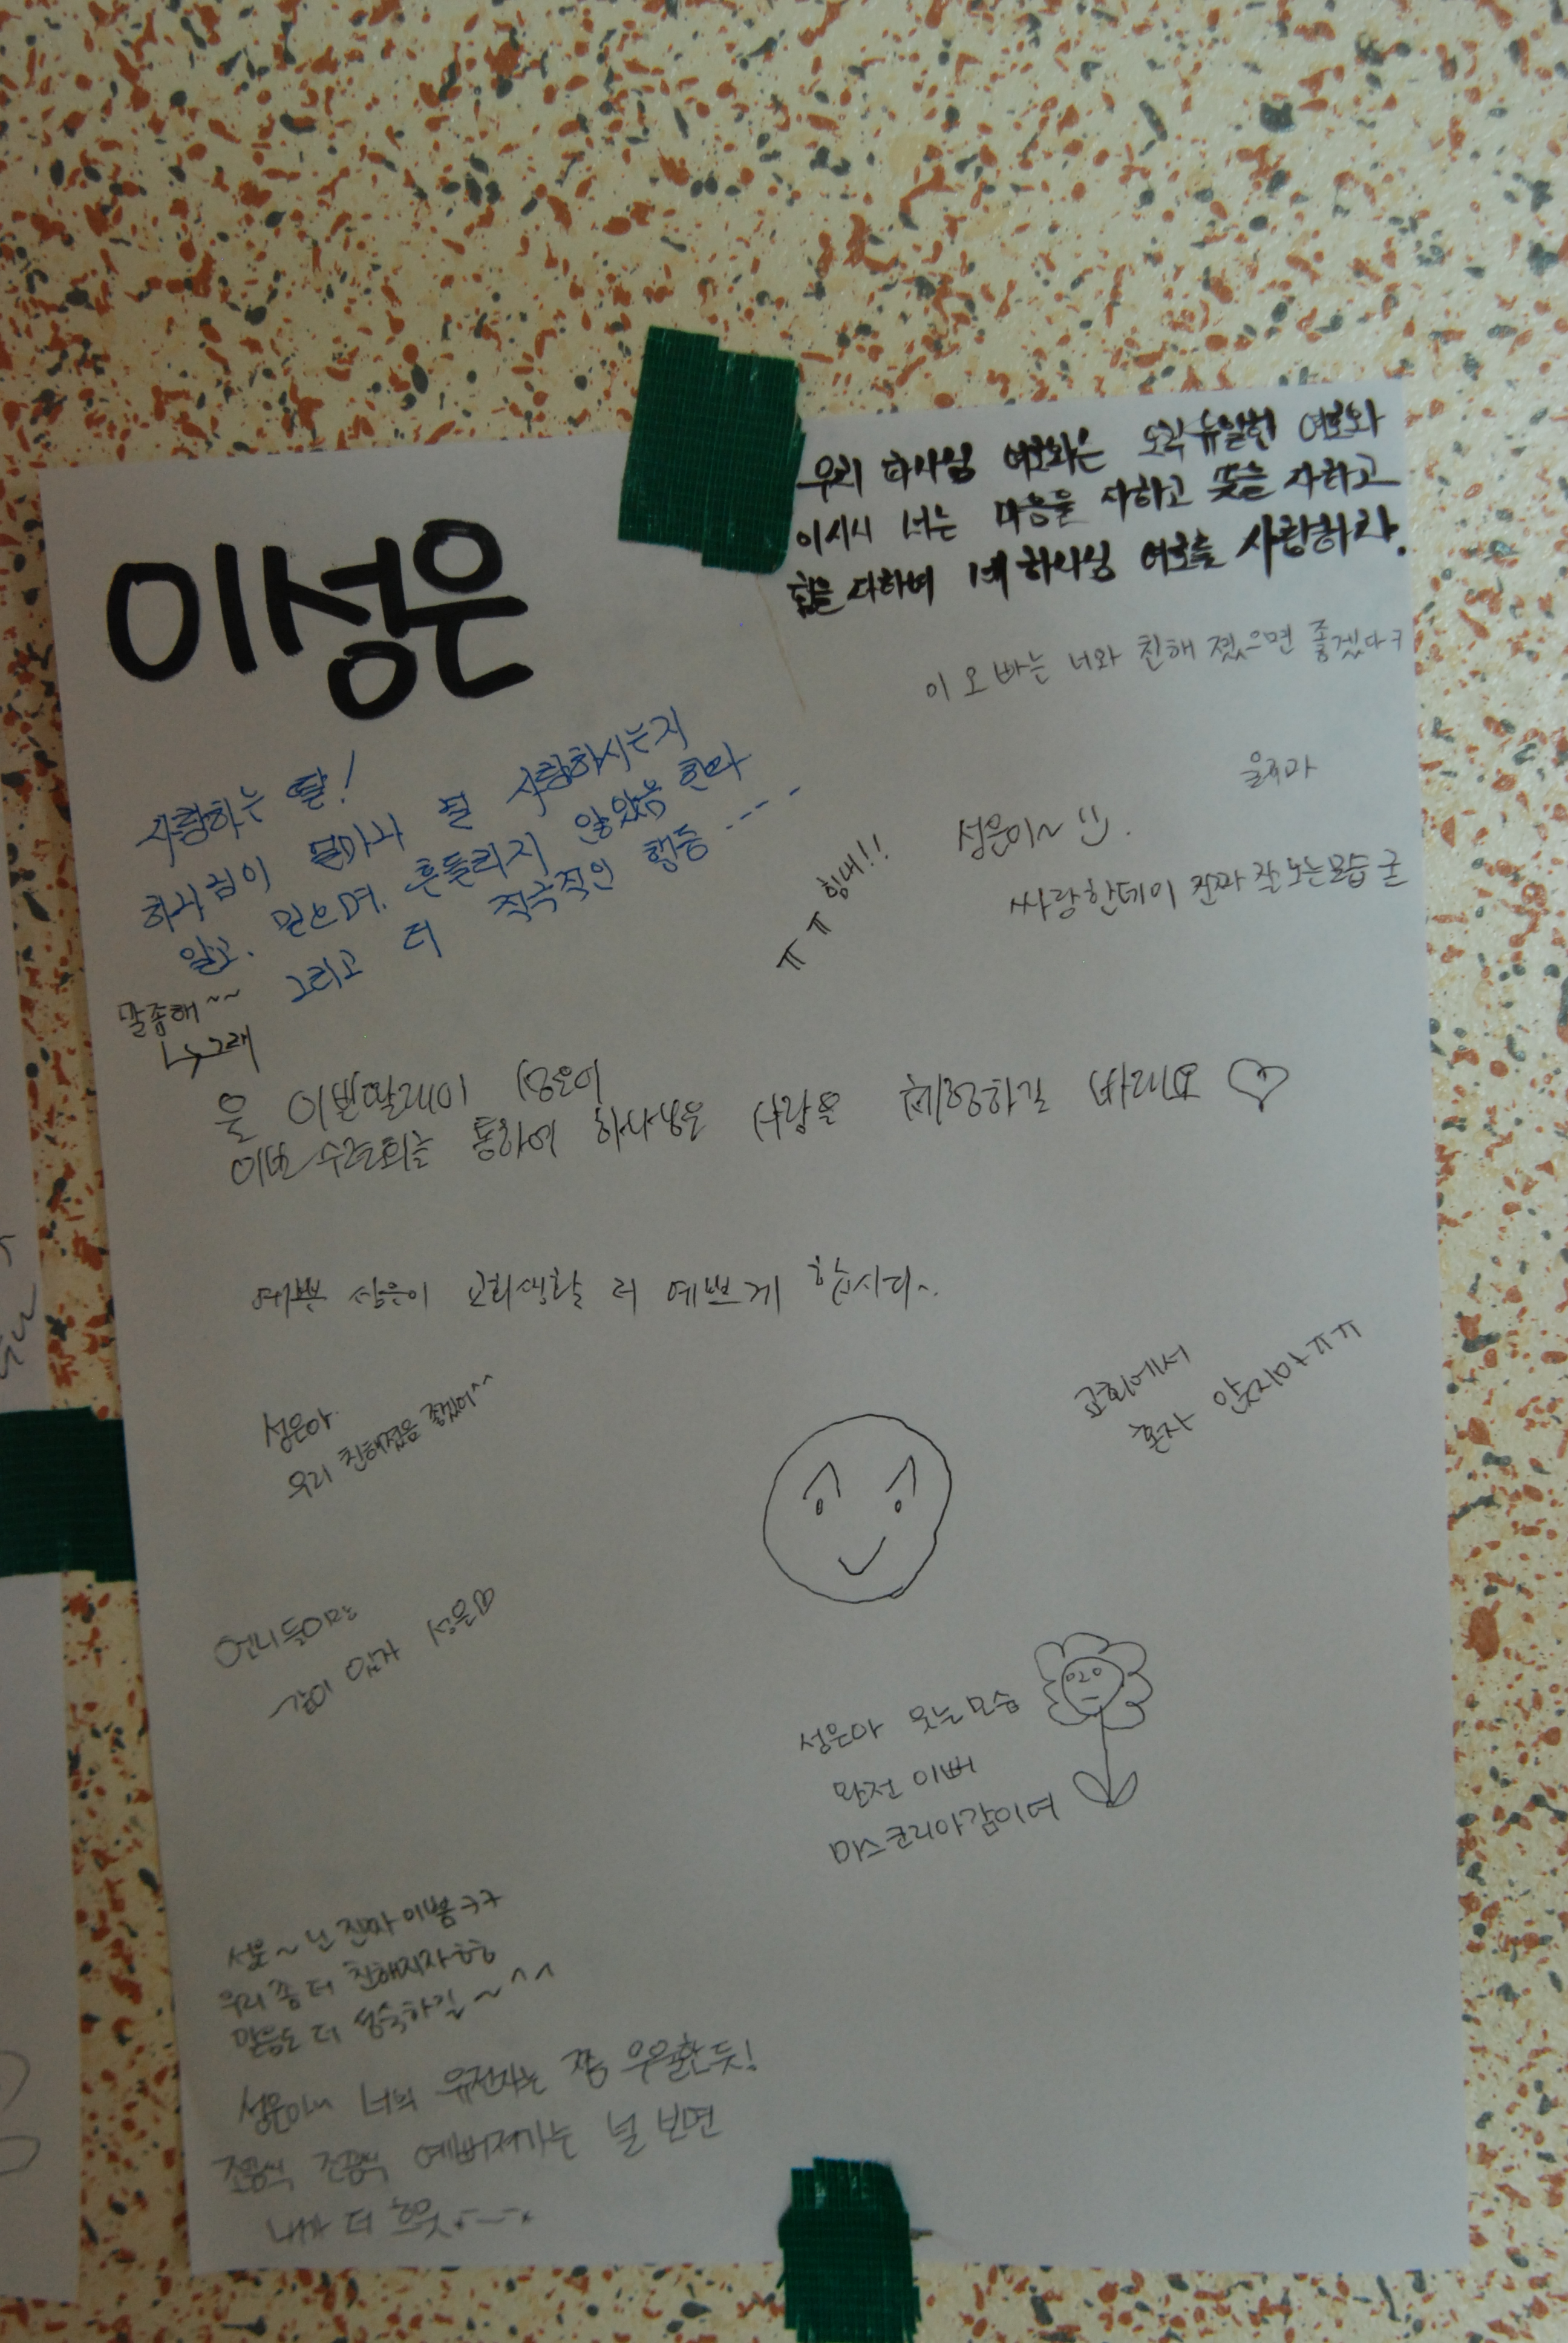 이성은
우리 하나님 여호와는 오직 유일한 여호와
이시니 너는 마음을 다하고 뜻을 다하고
힘을 다하여 네 하나님 여호와를 사랑하라.
이 오빠는 너와 친해 졌으면 좋겠다ㅋ
사랑하는 딸!
하나님이 얼마나 널 사랑하시는지
알고. 믿으며. 흔들리지 않았음 한다
그리고 더 적극적인 행동 ----
힘내!!
ㅠㅠ
성은이~ :)
싸랑한데이 진짜 잘 노는모습 굳
말좀해~~
↳그래
성은이
이번 수련회를 통하여 하나님은 사랑을 체험하길 바래요 ♡
예쁜 성은이 교회생활 더 예쁘게 합시다~.
성은아
우리 친해졌음 좋겠어^^
교회에서
혼자 앉지마ㅠㅠ
언니들이랑
같이 앉자 성은♡
성은아 웃는모습
완전 이뻐
미스코리아감이여
성은~ 넌 진짜 이뿜ㅋㅋ
우리 좀 더 친해지자ㅎㅎ
믿음도 더 성숙하길~^^
성은아~ 너의 유전자는 쫌 우월한 듯!
조금씩 조금씩 예뻐져가는 널 보면
내가 더 흐뭇